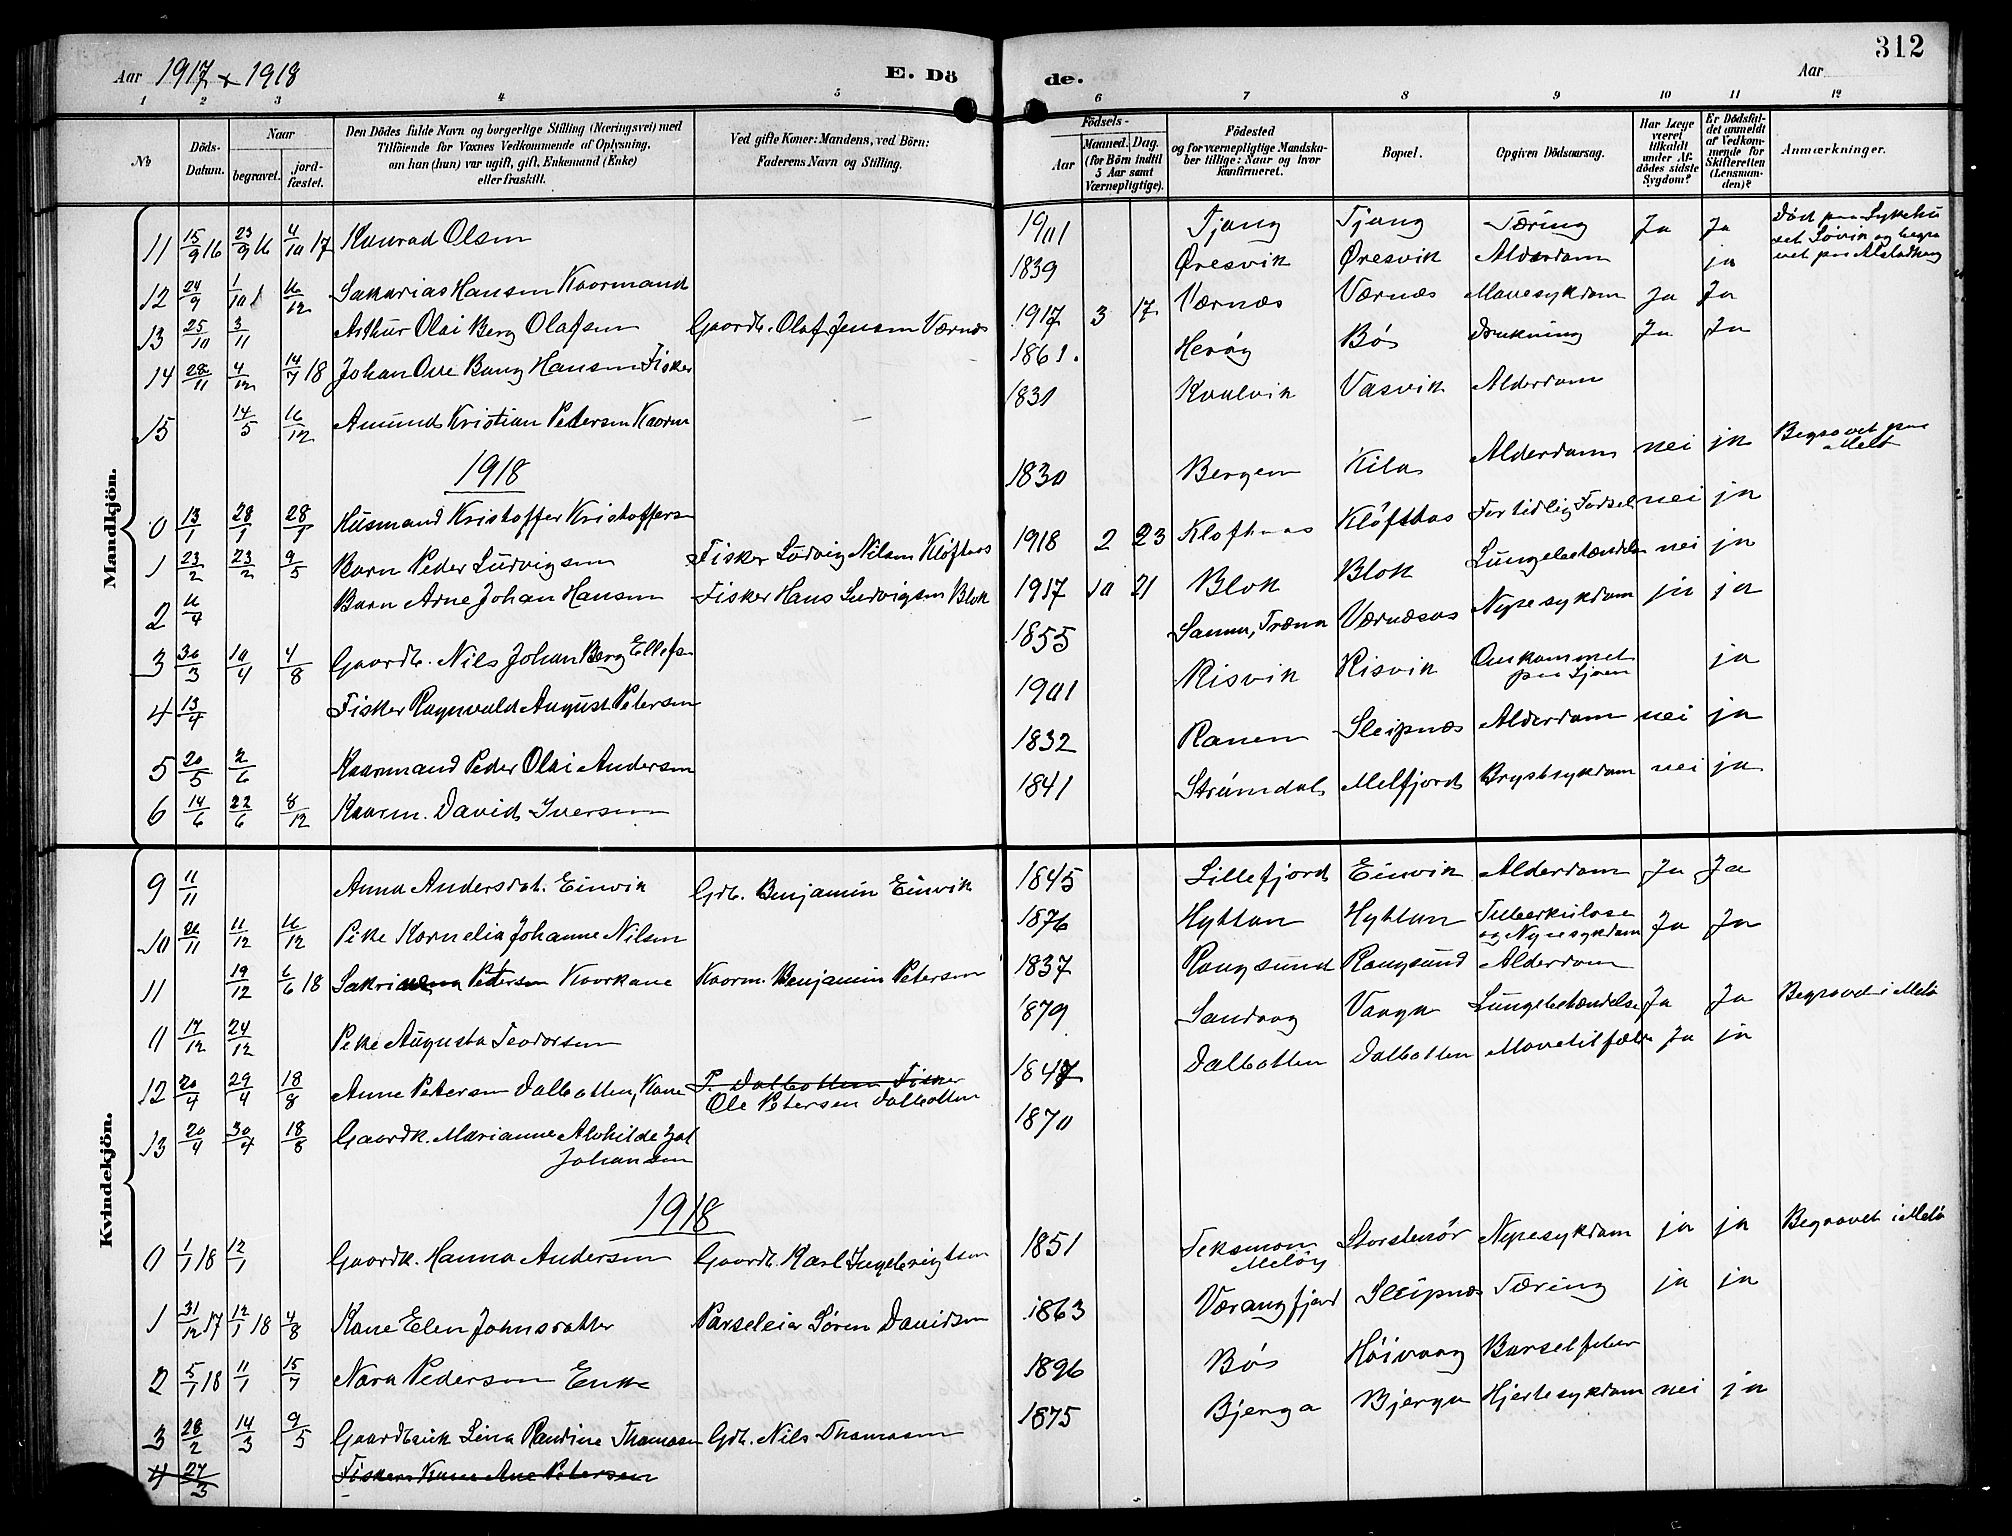 312
Aar 1917 + 1918
E. Dö
de.
Aar
1 2 3 4 5 6 7 8 9 10 11 12
No
Döds-Datum.
Naar
begravet.
jord-fæstet.
Den Dödes fulde Navn og borgerlige Stilling (Næringsvei) med
Tilföiende for Voxnes Vedkommende af Oplysning,
om han (hun) var ugift, gift, Enkemand (Enke)
eller fraskilt.
Ved gifte Koner: Mandens, ved Börn:
Faderens Navn og Stilling.
Födsels-
Aar
Maaned. Dag.
(for Börn indtil
5 Aar samt
Værnepligtige).
Födested
og for værnepligtige Mandska-
ber tillige: Naar og hvor
konfirmeret.
Bopæl.
Opgiven Dödsaarsag.
Har Læge
været
tilkaldt
under Af-
dödes sidste
Sygdom?
Er Dödsfal-
det anmeldt
af Vedkom-
mende for
Skifteretten
(Lensman-
den)?
Anmærkninger.
Mandkjön.
11 15/9 16 23/9 16 4/10 17 Konrad Olsen 1901 Tjong Tjong Tæring Ja Ja Død paa Sykehu
set Søvik og begra
vet paa Alstadhaug
12 24/9 1/10 16/12 Sakarias Hansen Kaarmand 1839 Øresvik Øresvik Alderdom ja
13 25/10 3/11 Arthur Olai Berg Olafsen Gaardb. Olaf Jensen Værnes 1917 3 17 Værnæs Værnæs Mavesykdom Ja Ja
14 28/11 4/12 14/7 18 Johan Ove Bang Hansen Fisker 1861. Herøy Bøs Drukning Ja Ja
15 14/5 16/12 Amund Kristian Pedersen Kaarm 1831 Kvalvik Vasvik Alderdom
1918
0 13/1 28/1 28/1 Husmand Kristoffer Kristoffersen 1830 Bergen Kila Alderdom nei ja Begravet paa
Melö
1 23/2 23/2 9/5 Barn Peder Ludvigsen Fisker Ludvig Nilsen Kløftas 1918 2 23 Kløftnas Kløftas For tidlig Fødsel nei ja
2 11/4 Barn Arne Johan Hansen Fisker Hans Ludvigsen Blok 1917 10 21 Blok Blok Lungebetændelse nei ja
3 30/3 10/4 4/8 Gaardb. Nils Johan Berg Ellefs 1855 Sanna, Træna Værnæsos Nyresykdom ja ja
4 13/4 Fisker Ragnvald August Petersen 1901 Risvik Risvik Omkommet
paa Sjøen ja
5 20/5 2/6 Kaarmand Peder Olai Andersen 1832 Ranen Sleipnæs Alderdom nei ja
6 14/6 22/6 8/12 Kaarm. David Iversen 1841 Strømdal Melfjord Brystsykdom nei ja
Kvindekjön.
9 11/11 Anna Andersdat. Einvik Gdb. Benjamin Einvik 1845 Lillefjord Einvik Alderdom Ja Ja
10 26/11 11/12 16/12 Pike Kornelia Johanne Nilsen 1876 Hyttan Hyttan Tuberkulose
og Nyresykdom Ja Ja
11 19/12 6/6 18 Sakrine Petersen Kaarkane Kaarm. Benjamin Petersen 1837 Rangsund Rangsund Alderdom
11 17/12 24/12 Pike Augusta Teodorsen 1879 Sandvaag Vaaga Lungebetændelse Ja Ja Begravet i Melö
12 20/4 29/4 18/8 Anne Petersen Dalbotten, Kone P. Dalbotten Fisker
Ole Petersen Dalbotten 1847 Dalbotten Dalbotten Mavetilfælde Ja ja
13 20/4 30/4 18/8 Gaardk. Marianne Alvhilde
Johansen 1870
1918
0 1/1 18 12/1 Gaardk. Hanna Andersen Gaardb. Karl Ingebrigtsen 1851 Teksmon
Meløy Storstenør Nyresykdom ja ja Begravet i Melö
1 31/12 17 12/1 18 4/8 Kone Elen Johnsdatter Parseleier Søren Davidsen 1863 Værangfjord Sleipnæs Tæring ja ja
2 5/1 18 11/1 15/7 Nora Pedersen Enke 1896 Bøs Høivaag Barselfeber
3 28/2 14/3 9/5 Gaardbruk Lina Paudine Thomasen Gdb. Nils Thomasen 1875 Bjerga Bjerga Hjertesykdom nei ja
4 27/3 Fiskers Kone Ane Petersen